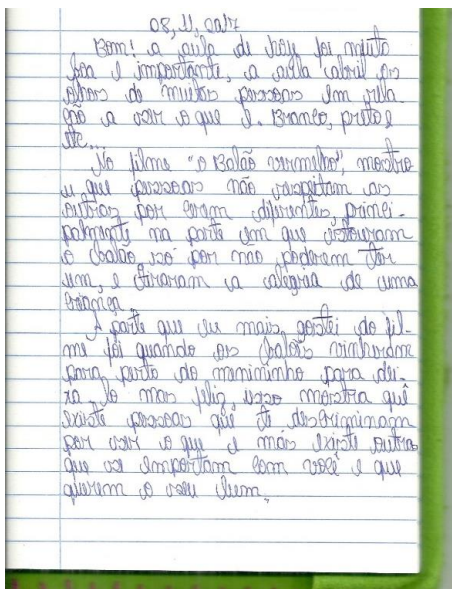 08,11,2017
Bom! a aula de hoy foi muito
boa e importante, a aula abril os
olhos de muitas pessoas em rela
ção a ser o que é. Branco, preto e
etc...
No filme "o Balão vermelho", mostro
u que pessoas não respeitam as
outras por serem diferentes, princi-
palmente na parte em que estouraram
o balão só por não poderem ter
um, e tiraram a alegria de uma
criança.
A parte que eu mais gostei do fil-
me foi quando os balões vinheram
para perto do menininho para dei-
xa-lo mas feliz, isso mostra quê
existe pessoas que te descriminam
por ser o que é mais existe outra
que se importam com você e que
querem o seu bem.